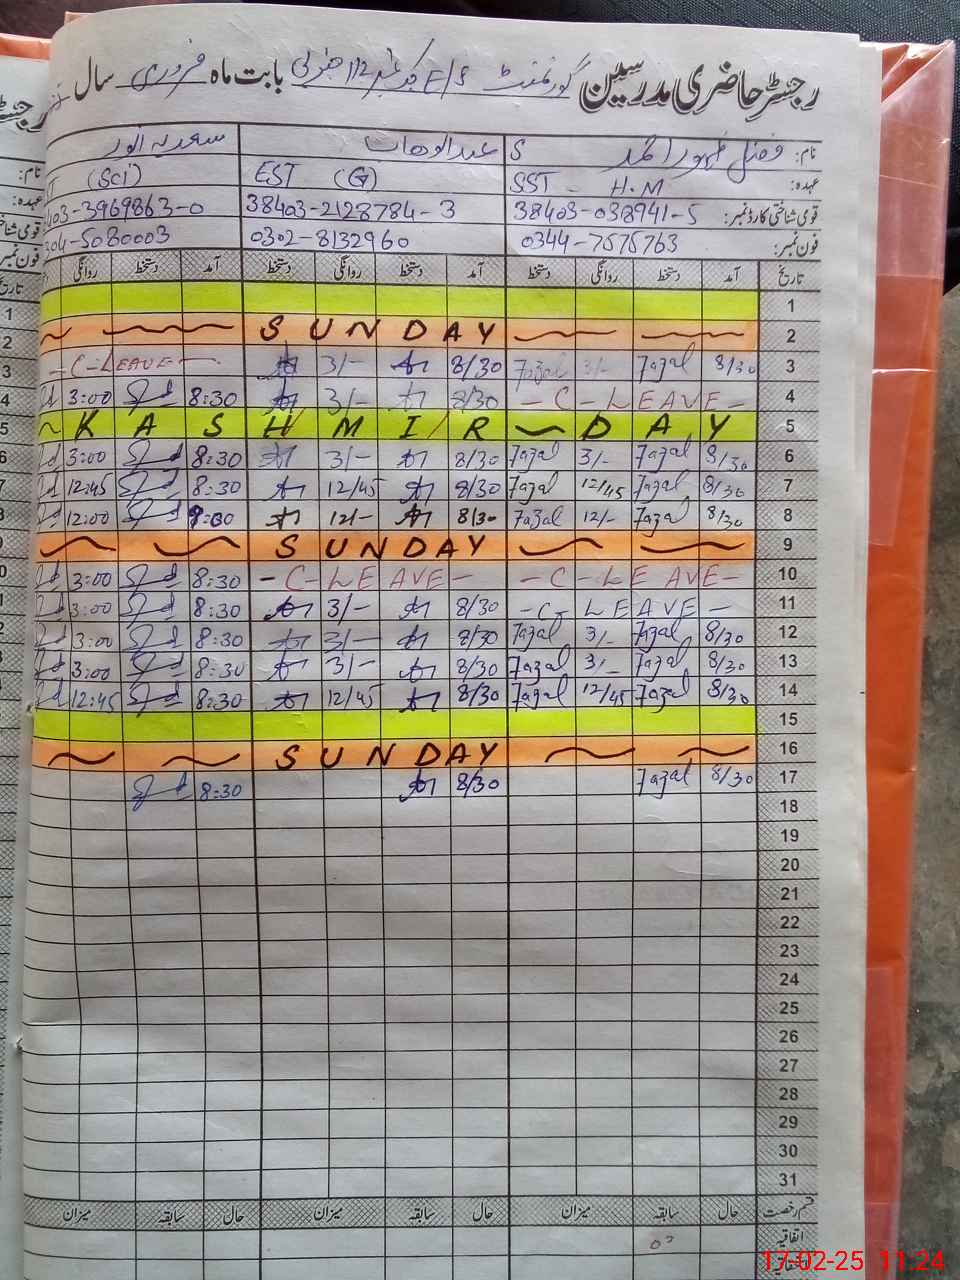 رجسٹر حاضری مدرسین گورنمنٹ E/S چک نمبر 112 جنوبی بابت ماہ فروری سال
نام: فضل ظہور احمد S عبدالوھاب سعدیہ انور
عہدہ: SST - H.M EST (G) (Sci)
قومی شناختی کارڈ نمبر: 38403-038941-5 38403-2128784-3 403-3969863-0
فون نمبر: 0344-7575763 0302-8132960 304-5080003
تاریخ آمد دستخط روانگی دستخط آمد دستخط روانگی دستخط آمد دستخط روانگی
1
2 SUNDAY
3 8/30 Fazal 3/- Fazal 8/30 3/- C-LEAVE
4 -C-LEAVE- 8/30 3/- 8:30 3:00
5 KASHMIR DAY
6 8/30 Fazal 3/- Fazal 8/30 3/- 8:30 3:00
7 8/30 Fazal 12/45 Fazal 8/30 12/45 8:30 12:45
8 8/30 Fazal 12/- Fazal 8/30 12/- 8:30 12:00
9 SUNDAY
10 -C-LEAVE- -C-LEAVE- 8:30 3:00
11 -C-LEAVE- 8/30 3/- 8:30 3:00
12 8/30 Fazal 3/- Fazal 8/30 3/- 8:30 3:00
13 8/30 Fazal 3/- Fazal 8/30 3/- 8:30 3:00
14 8/30 Fazal 12/45 Fazal 8/30 12/45 8:30 12:45
15
16 SUNDAY
17 8/30 Fazal 8/30 8:30
18
19
20
21
22
23
24
25
26
27
28
29
30
31
قسم رخصت حال سابقہ میزان حال سابقہ میزان حال سابقہ میزان
اتفاقیہ
17-02-25 11:24